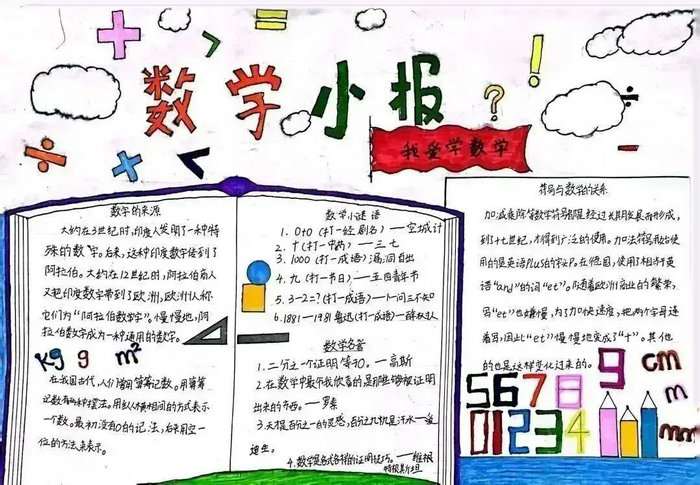 数学小报
我爱学数学
数学的来源
大约在3世纪时,印度人发明了一种特
殊的数字。后来,这种印度数字传到了
阿拉伯。大约在12世纪时,阿拉伯商人
又把印度数字带到了欧洲,欧洲人称
它们为"阿拉伯数字"。慢慢地,阿
拉伯数字成为一种通用的数字。
kg g m²
在我国古代,人们用算筹记数。用算筹
记数有两种摆法。用纵横相间的方式表示
一个数。最初没有0的记法,后来用空一
位的方法来表示。
数学小谜语
1. 0+0 (打一经剧名) 一空城计
2. 十 (打一中药) 一 三七
3. 1000 (打一成语) 漏洞百出
4. 九 (打一节日) 一 五四青年节
5. 3-2=? (打一成语) 一一问三不知
6. 1881—1981 鲁迅(打一成语)一
数学名言
1. 二分之一个证明等于0。一高斯
2. 在数学中最令我欣喜的是那些能够被证明
出来的东西。一罗素
3. 天才百分之一的灵感,百分之九十九是汗水一爱
迪生
4. 数学是各式各样的证明技巧。一维根
特根斯坦
符号与数学的关系
加减乘除等数学符号都是经过长期发展而形成,
到了十七世纪,才得到广泛的使用。加法符号开始使
用的是英语Plus的字头P。在德国,使用了相当于英
语"and"的词"et"。随着欧洲商业的繁荣,
写"et"也嫌慢,为了加快速度,把两个字母连
着写,因此"et"慢慢地变成了"+"。其他
的也是这样变化过来的。
5678 9 cm
01234 m
mm